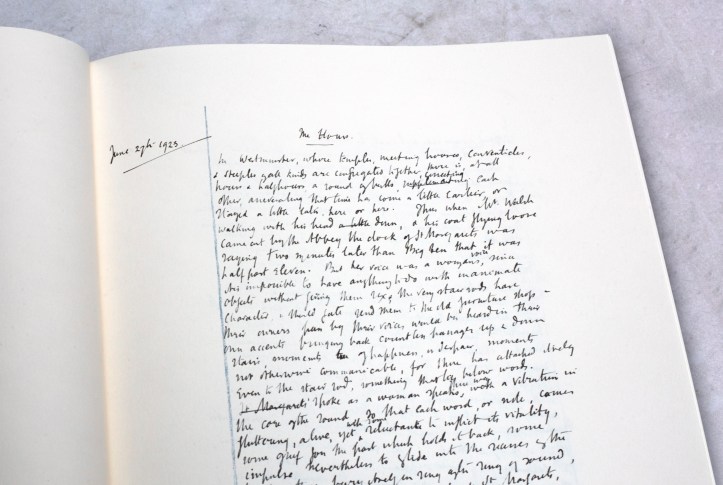 June 27th 1923
The Hours.
In Westminster, where temples, meeting houses, conventicles,
& steeples of all kinds are congregated together, there is at all
hours & halfhours a round of bells, correcting each
other, asseverating that time has come a little earlier, or
stayed a little later, here or here. Thus when Mr. Walsh
walking with his head a little down, & his coat flying loose
came out by the Abbey the clock of St Margarets was
saying two minutes later than Big Ben that it was
half past eleven. But her voice was a woman's, since
it is impossible to have anything to do with inanimate
objects without giving them sex, the very stair rods have
character, & should fate send them to the old furniture shop
their owners pass by their voices would be heard in their
own accents bringing back countless passages up & down
stairs, moments of happiness, or despair, moments
not otherwise communicable, for there has attached itself
Even to the stair rod, something that lies below words.
St Margarets spoke as a woman speaks, with a vibration in
the core of the sound so that each word, or note, comes
fluttering, alive, yet with some reluctance to inflict its vitality,
some grief for the past which holds it back, some
impulse nevertheless to glide into the recesses of the
itself in ring after ring of sound
St Margarets,